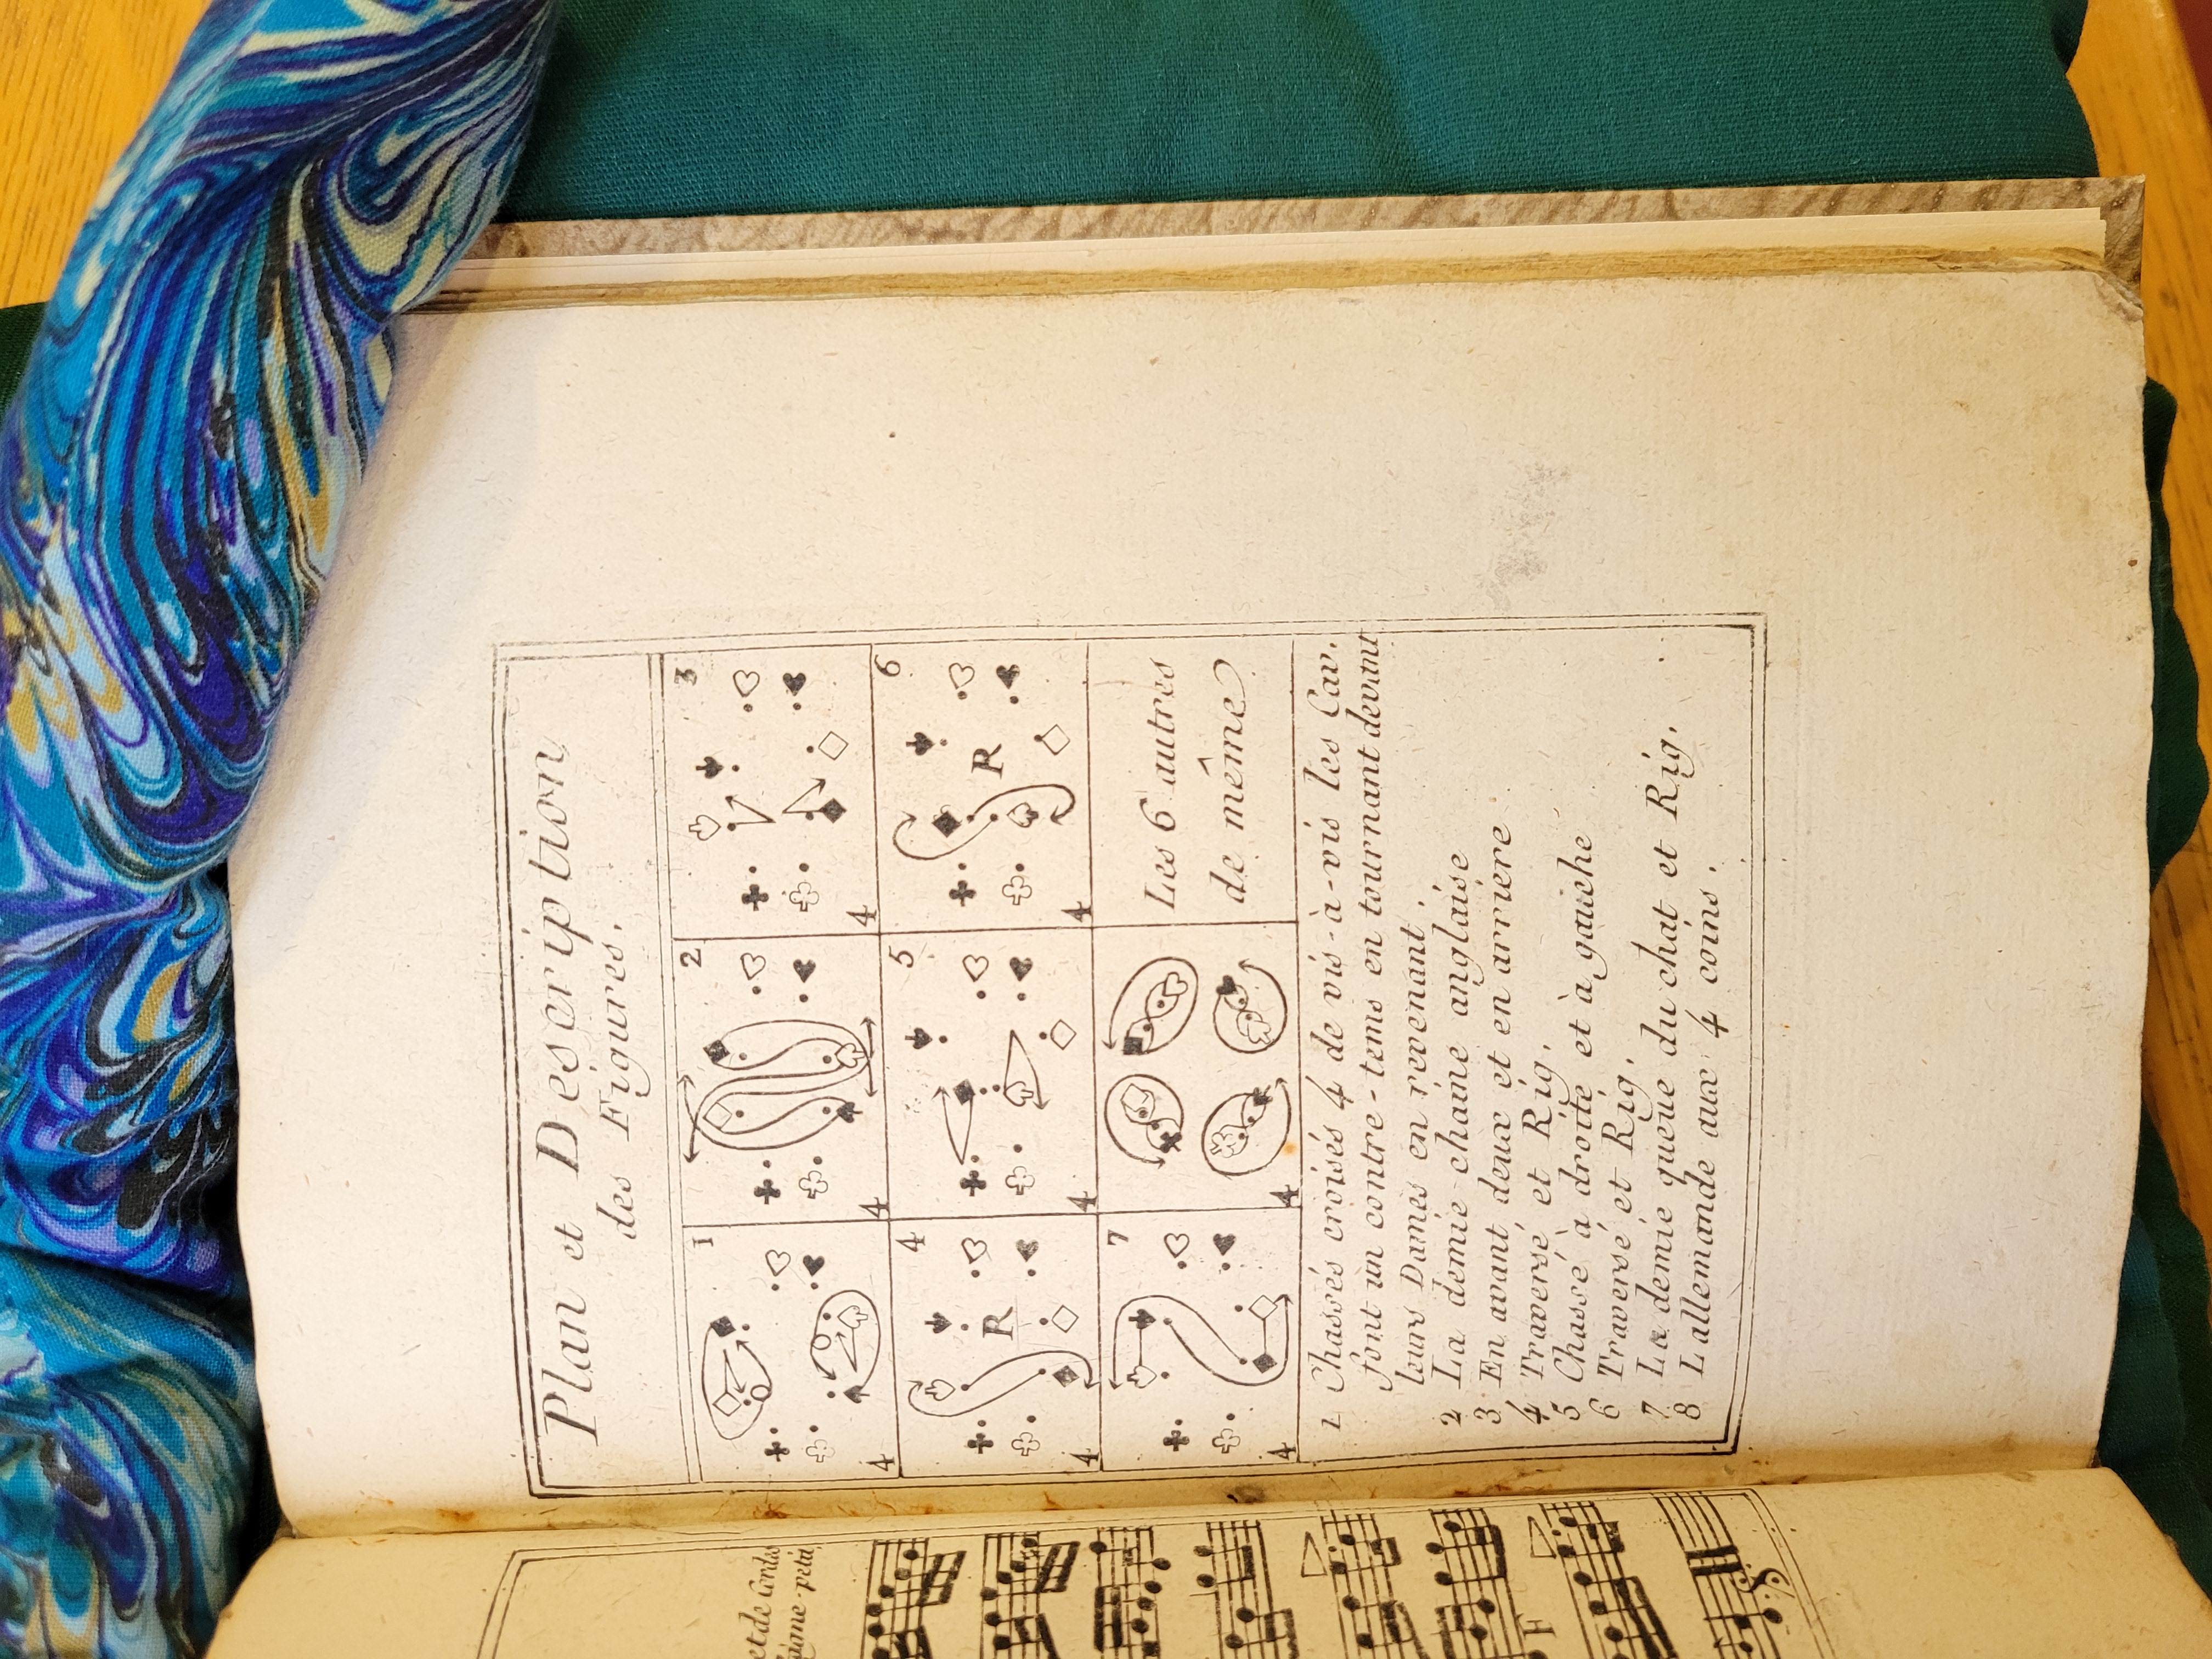 Plan et Description
des Figures.
1
2
3
4
4
4
4
R
5
6
R
4
4
4
7
Les 6 autres
de même
4
4
1 Chassés croisés 4 de vis-à-vis les Cav.
font un contre-tems en tournant devant
leurs Dames en revenant.
2 La demie chaine anglaise
3 En avant deux et en arriere
4 Traversé et Rig.
5 Chassé à droite et à gauche
6 Traversé et Rig.
7 La demie queue du chat et Rig.
8 L'allemande aux 4 coins.
F